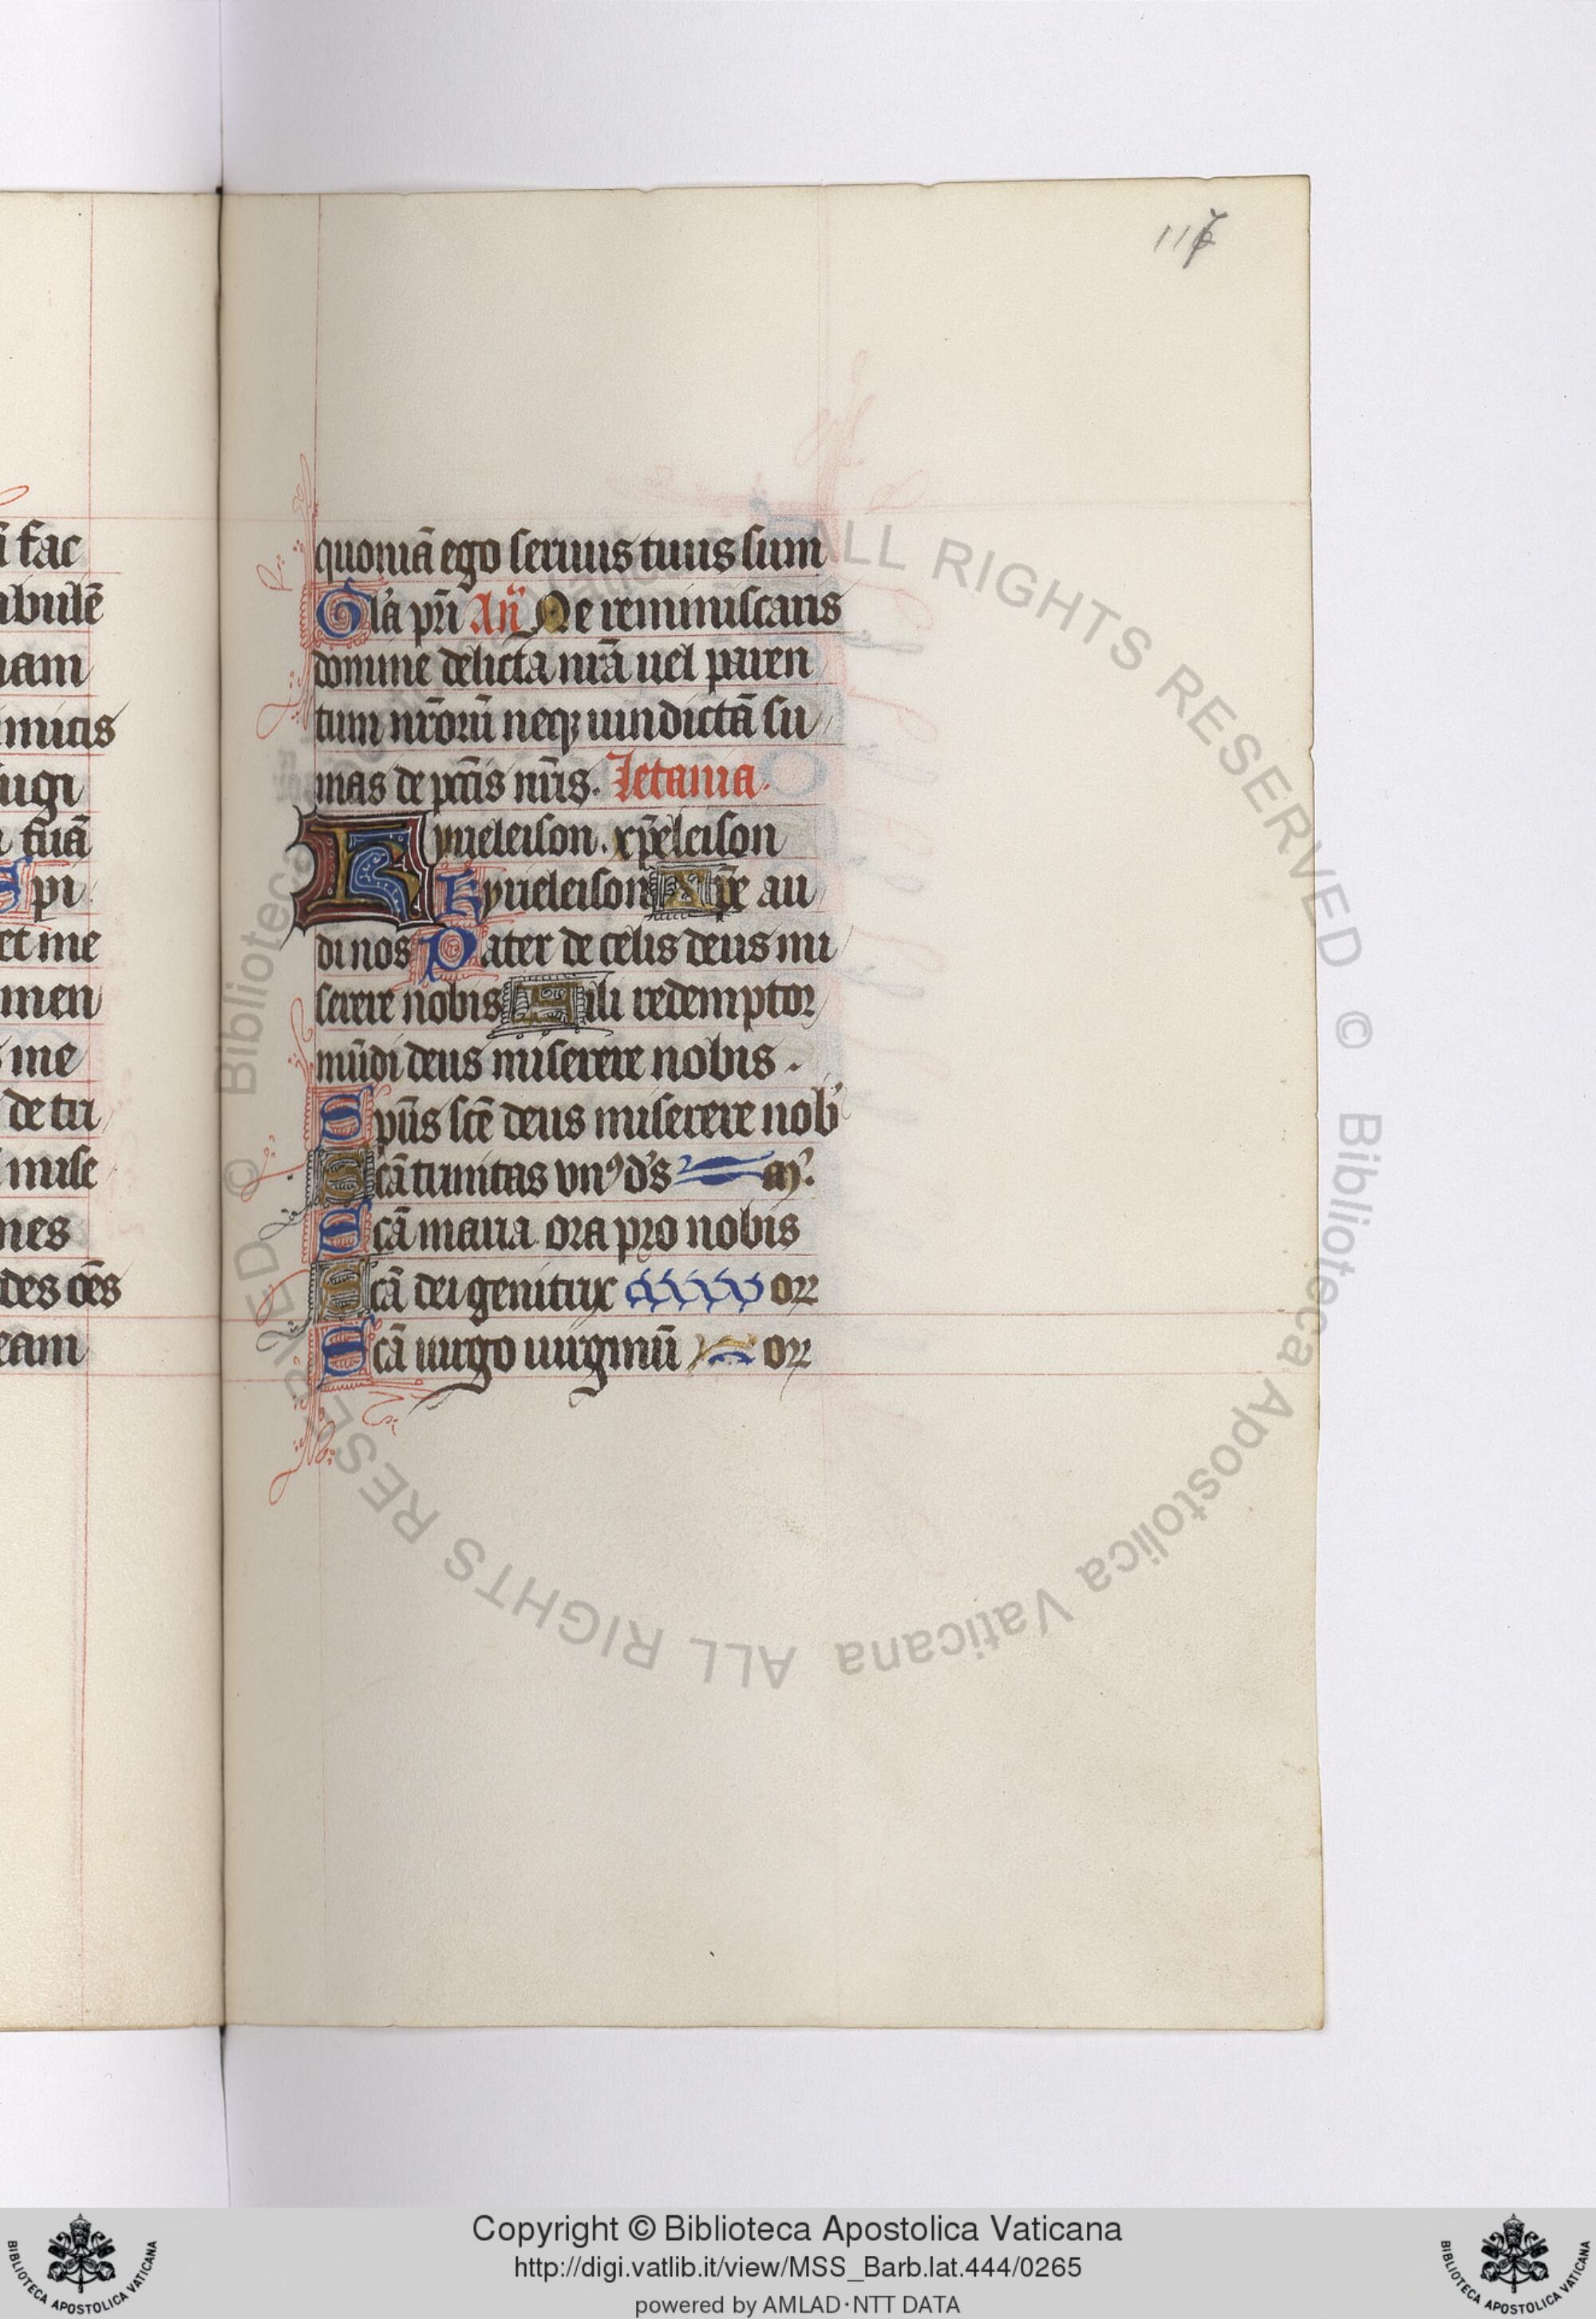 117
ı fac
ibulē
nam
imicis
fugi
tuā
Spi
et me
men
me
de tri
mise
nes
des oēs
eam
quoniā ego seruus tuus sum
Glā pr̄i An̄ Ne reminiscaris
domine delicta nr̄a uel paren
tum nr̄orū neqꝫ uindictā su
mas de pcc̄is nr̄is. letania.
Kyrieleison. xp̄eleison
Kyrieleison Xp̄e au
di nos Pater de celis deus mi
serere nobis Fili redemptor
mūdi deus miserere nobis.
Sp̄us sc̄e deus miserere nob̕
Scā trinitas vnꝰ d̄s mͥ.
Scā maria ora pro nobis
Scā dei genitrix or
Scā uirgo uirginū or
© Biblioteca Apostolica Vaticana ALL RIGHTS RESERVED
Copyright © Biblioteca Apostolica Vaticana
http://digi.vatlib.it/view/MSS_Barb.lat.444/0265
powered by AMLAD·NTT DATA
BIBLIOTECA APOSTOLICA VATICANA
BIBLIOTECA APOSTOLICA VATICANA